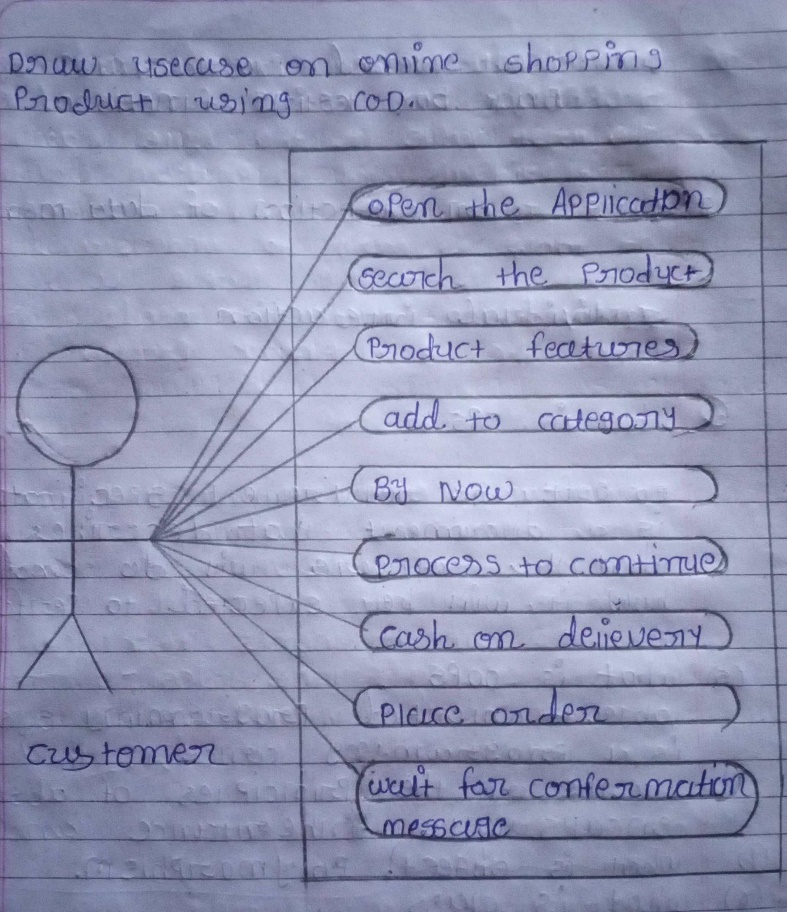 Draw usecase on online shopping
Product using COD.
open the Application
search the Product
Product features
add to category
By Now
Process to continue
cash on delievery
Place order
wait for confermation
message
customer